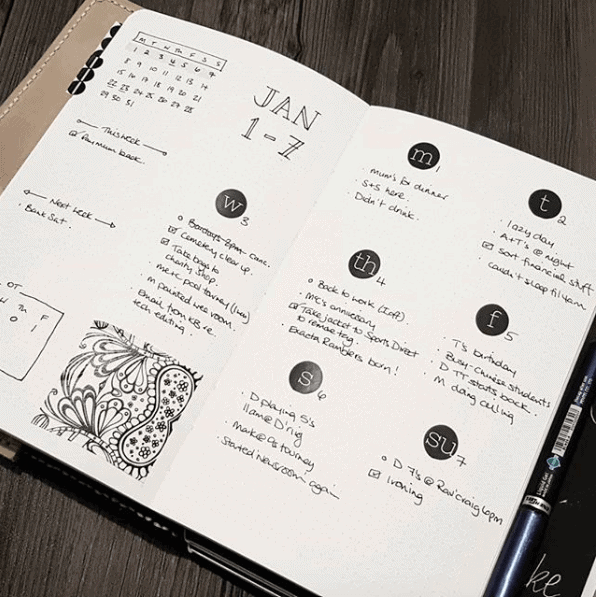 M T W Th F S S
1 2 3 4 5 6 7
8 9 10 11 12 13 14
15 16 17 18 19 20 21
22 23 24 25 26 27 28
29 30 31
JAN
1-7
This week
Pay Mum back.
Next week
Bank Sat.
OT
Th F
0 1
w 3
Barclays 2pm canc.
Cemetery clear up.
Take bags to
charity shop.
McK pool tourney
M painted wee room.
Email from KB re
tech editing.
m 1
Mum's for dinner
S+S here.
Didn't drink.
t 2
Lazy day
A+T's @ night
Sort financial stuff
Couldn't sleep til 4am.
th 4
Back to work
MC's anniversary
Take jacket to Sports Direct
to remove tag.
Exacta Ramblers born!
f 5
T's birthday
Busy - Chinese students
D TT starts back.
M doing ceiling
s 6
D playing 5's
11am @ D'rig
Mark @ tourney
Started Newsroom again
su 7
D 7's @ Rav'craig 6pm
Ironing
ke